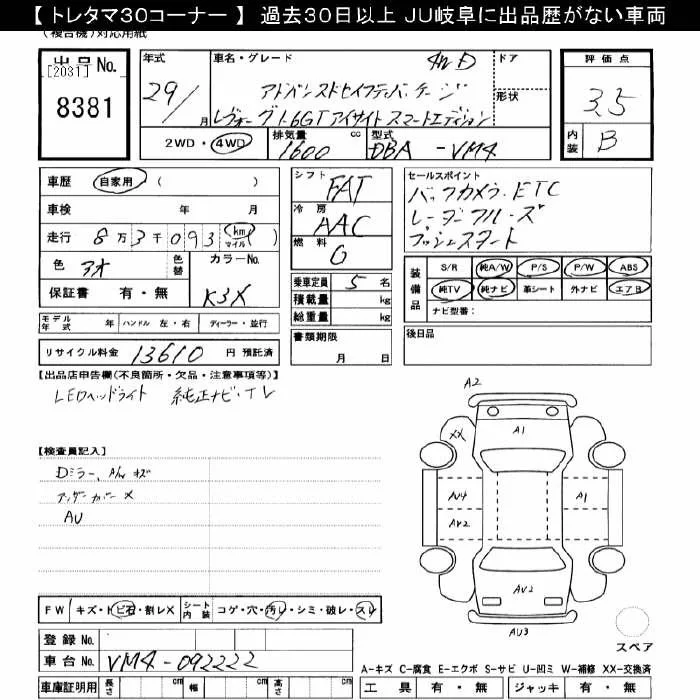 【 トレタマ30コーナー 】 過去30日以上 JU岐阜に出品歴がない車両
(複合機)対応用紙
出品No. [2031] 8381
年式 29/ 月
車名・グレード 4WD
アドバンスドセイフティパッケージ
レヴォーグ1.6GTアイサイトスマートエディション
ドア
形状
評価点 3.5
内装 B
2WD・4WD 排気量 1600 cc 型式 DBA-VM4
車歴 自家用 ( )
車検 年 月
走行 8万3千093 (km マイル)
色 アオ 色替 カラーNo. K3X
保証書 有・無
モデル年式 年 ハンドル 左・右 ディーラー・並行
リサイクル料金 13610 円 預託済
シフト FAT
冷房 AAC
燃料 G
乗車定員 5 名
積載量 kg
総重量 kg
書類期限 月 日
セールスポイント
バックカメラ.ETC
レーダークルーズ
プッシュスタート
装備品 S/R 純A/W P/S P/W ABS
純TV 純ナビ 革シート 外ナビ エアB
ナビ型番:
後日品
【出品店申告欄(不良箇所・欠品・注意事項等)】
LEDヘッドライト 純正ナビ・TV
【検査員記入】
Dミラー、A/W キズ
アンダーカバー X
AU
A2
A1
XX
AU4
AU2
A1
AU2
AU3
スペア
FW キズ・トビ石・割レX シート内装 コゲ・穴・汚レ・シミ・破レ・スレ
登録No.
車台No. VM4-092222
車庫証明用 長さ cm 幅 cm 高さ cm
A-キズ C-腐食 E-エクボ S-サビ U-凹ミ W-補修 XX-交換済
工具 有・無 ジャッキ 有・無